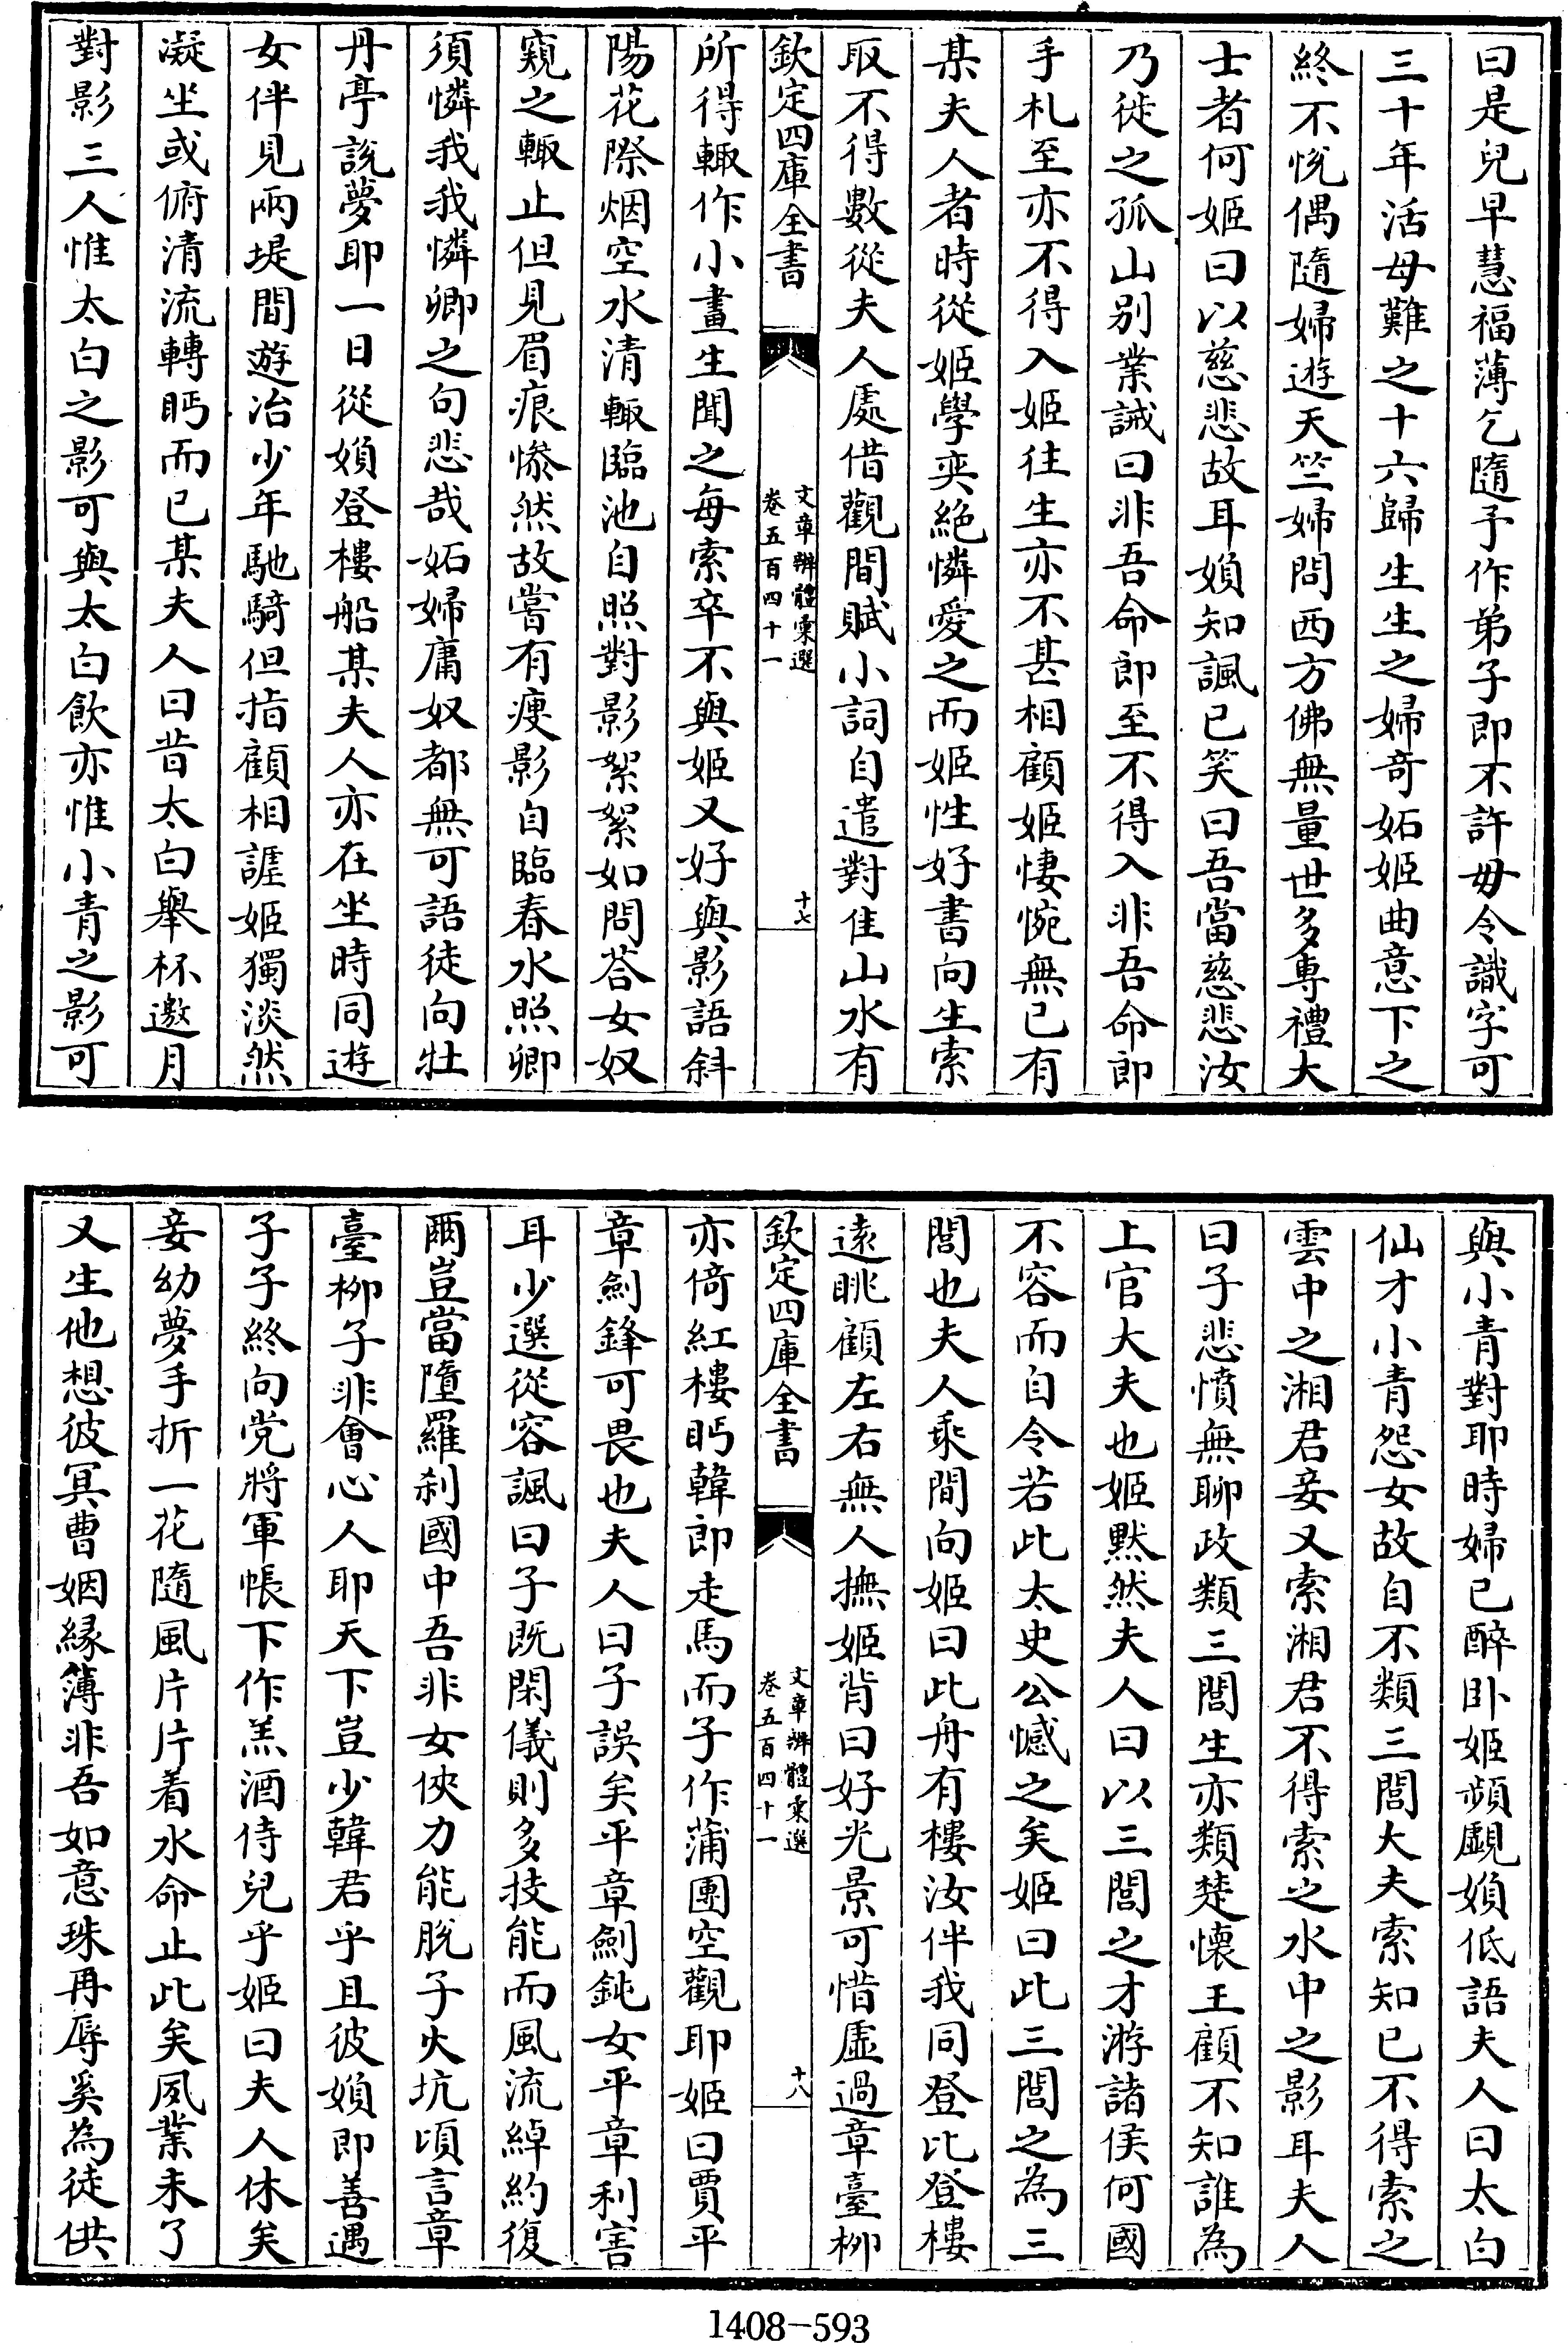 曰是兒早慧福薄乞隨予作弟子即不許毋令識字可
三十年活母難之十六歸生生之婦竒妬姬曲意下之
終不悅偶隨婦遊天竺婦問西方佛無量世多專禮大
士者何姬曰以慈悲故耳媍知諷已笑曰吾當慈悲汝
乃徙之孤山别業誡曰非吾命郎至不得入非吾命郎
手札至亦不得入姬往生亦不甚相顧姬悽惋無已有
某夫人者時從姬學奕絕憐愛之而姬性好書向生索
取不得數從夫人處借觀間賦小詞自遣對佳山水有
欽定四庫全書
文章辨體彙選
卷五百四十一
十七
所得輙作小畫生聞之每索卒不與姬又好與影語斜
陽花際烟空水清輙臨池自照對影絮絮如問荅女奴
窺之輙止但見眉痕慘然故嘗有瘦影自臨春水照卿
須憐我我憐卿之句悲哉妬婦庸奴都無可語徒向牡
丹亭説夢耶一日從媍登樓船某夫人亦在坐時同遊
女伴見兩堤間遊冶少年馳騎但指顧相謔姬獨淡然
凝坐或俯清流轉眄而已某夫人曰昔太白舉杯邀月
對影三人惟太白之影可與太白飲亦惟小青之影可
與小青對耶時婦已醉卧姬頻覷媍低語夫人曰太白
仙才小青怨女故自不類三閭大夫索知已不得索之
雲中之湘君妾又索湘君不得索之水中之影耳夫人
曰子悲憤無聊政類三閭生亦類楚懷王顧不知誰為
上官大夫也姬黙然夫人曰以三閭之才游諸侯何國
不容而自令若此太史公憾之矣姬曰此三閭之為三
閭也夫人乘間向姬曰此舟有樓汝伴我同登比登樓
遠眺顧左右無人撫姬背曰好光景可惜虚過章臺柳
欽定四庫全書
文章辨體彙選
卷五百四十一
十八
亦倚紅樓眄韓郎走馬而子作蒲團空觀耶姬曰賈平
章劍鋒可畏也夫人曰子誤矣平章劍鈍女平章利害
耳少選從容諷曰子既閑儀則多技能而風流綽約復
爾豈當墮羅刹國中吾非女俠力能脫子火坑頃言章
臺柳子非會心人耶天下豈少韓君乎且彼媍即善遇
子子終向党將軍帳下作羔酒侍兒乎姬曰夫人休矣
妾幼夢手折一花隨風片片着水命止此矣夙業未了
又生他想彼冥曹姻緣簿非吾如意珠再辱奚為徒供
1408-593